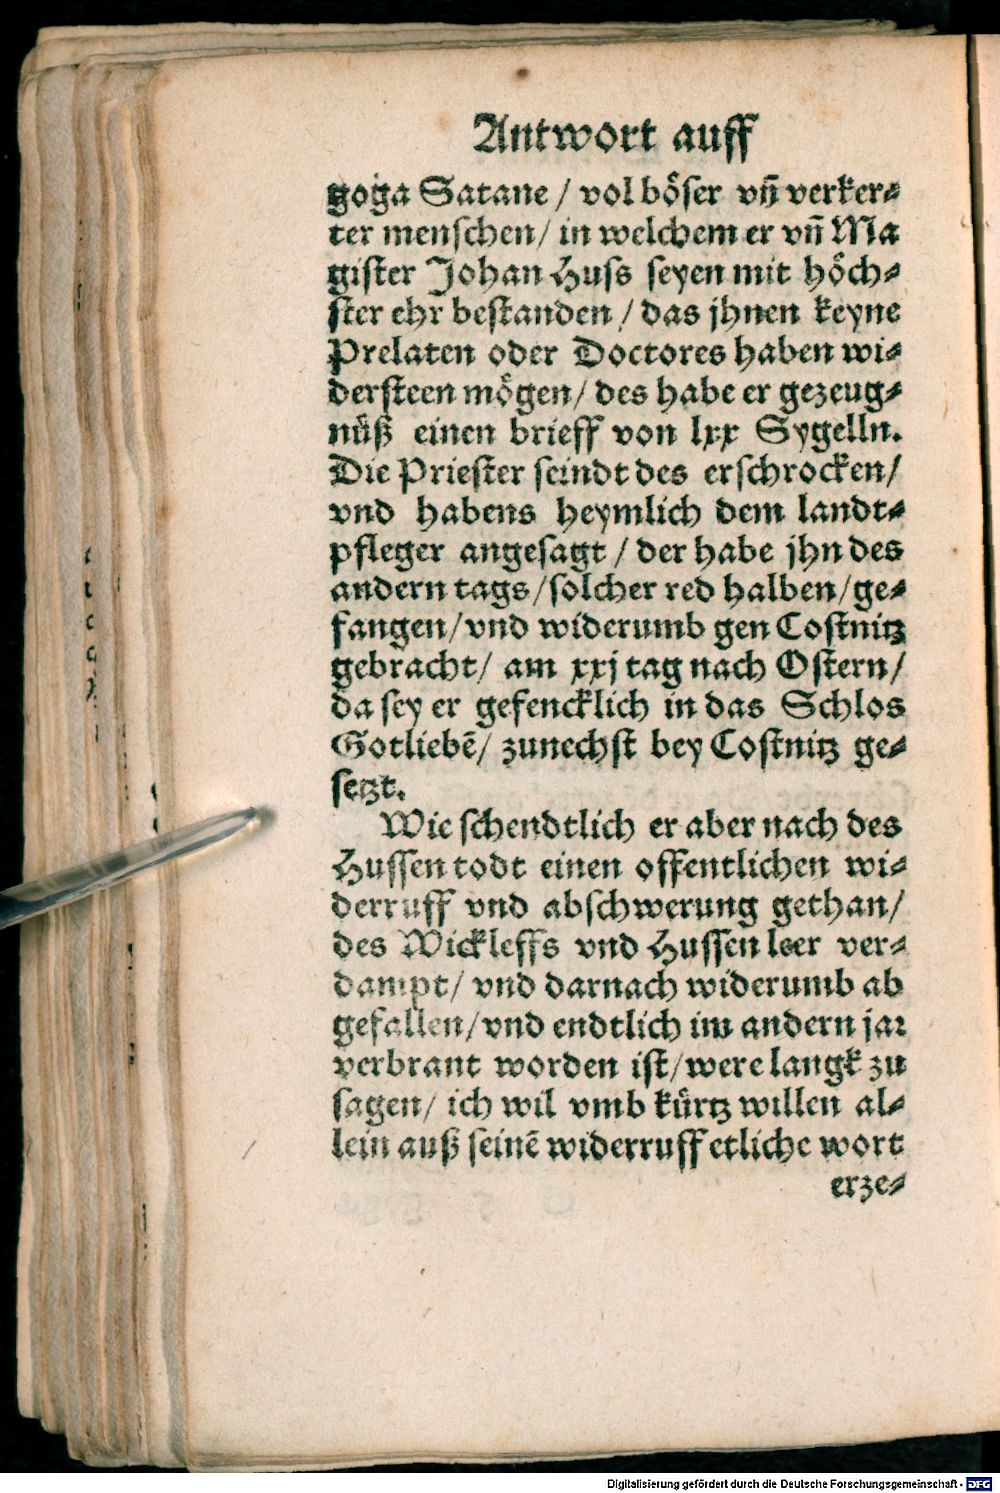 Antwort auff
goga Satane / vol böser vñ verker⸗
ter menschen / in welchem er vñ Ma
gister Johan Huss seyen mit höch⸗
ster ehr bestanden / das jhnen keyne
Prelaten oder Doctores haben wi⸗
dersteen mögen / des habe er gezeug⸗
nüß einen brieff von lxx Sygelln.
Die Priester seindt des erschrocken /
vnd habens heymlich dem landt⸗
pfleger angesagt / der habe jhn des
andern tags / solcher red halben / ge⸗
fangen / vnd widerumb gen Costnitz
gebracht / am xxj tag nach Ostern /
da sey er gefencklich in das Schlos
Gotliebē / zunechst bey Costnitz ge⸗
setzt.
Wie schendtlich er aber nach des
Hussen todt einen offentlichen wi⸗
derruff vnd abschwerung gethan /
des Wickleffs vnd Hussen leer ver⸗
dampt / vnd darnach widerumb ab
gefallen / vnd endtlich im andern jar
verbrant worden ist / were langk zu
sagen / ich wil vmb kürtz willen al⸗
lein auß seinē widerruff etliche wort
erze⸗
Digitalisierung gefördert durch die Deutsche Forschungsgemeinschaft - DFG